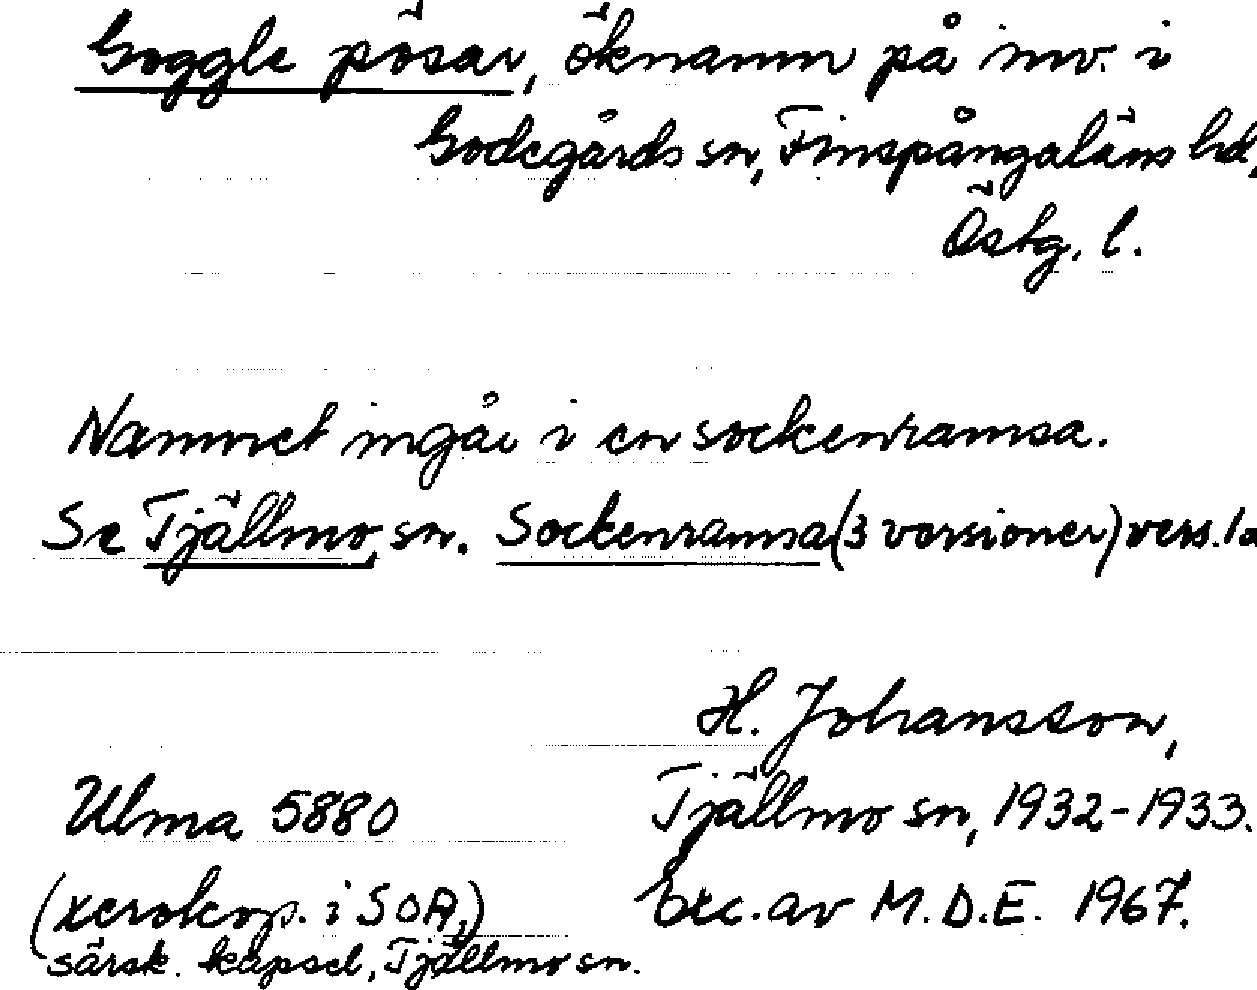 Goggle pösar, öknamn på inv. i
Godegårds sn, Finspångaläns hd,
Östg. l.
Namnet ingår i en sockenramsa.
Se Tjällmo, sn. Sockenramsa (3 versioner) vers. 1a
H. Johansson,
Ulma 5880 Tjällmo sn, 1932-1933.
(xerokop. i SOA,) exc. av M.D.E. 1967.
särsk. kapsel, Tjällmo sn.